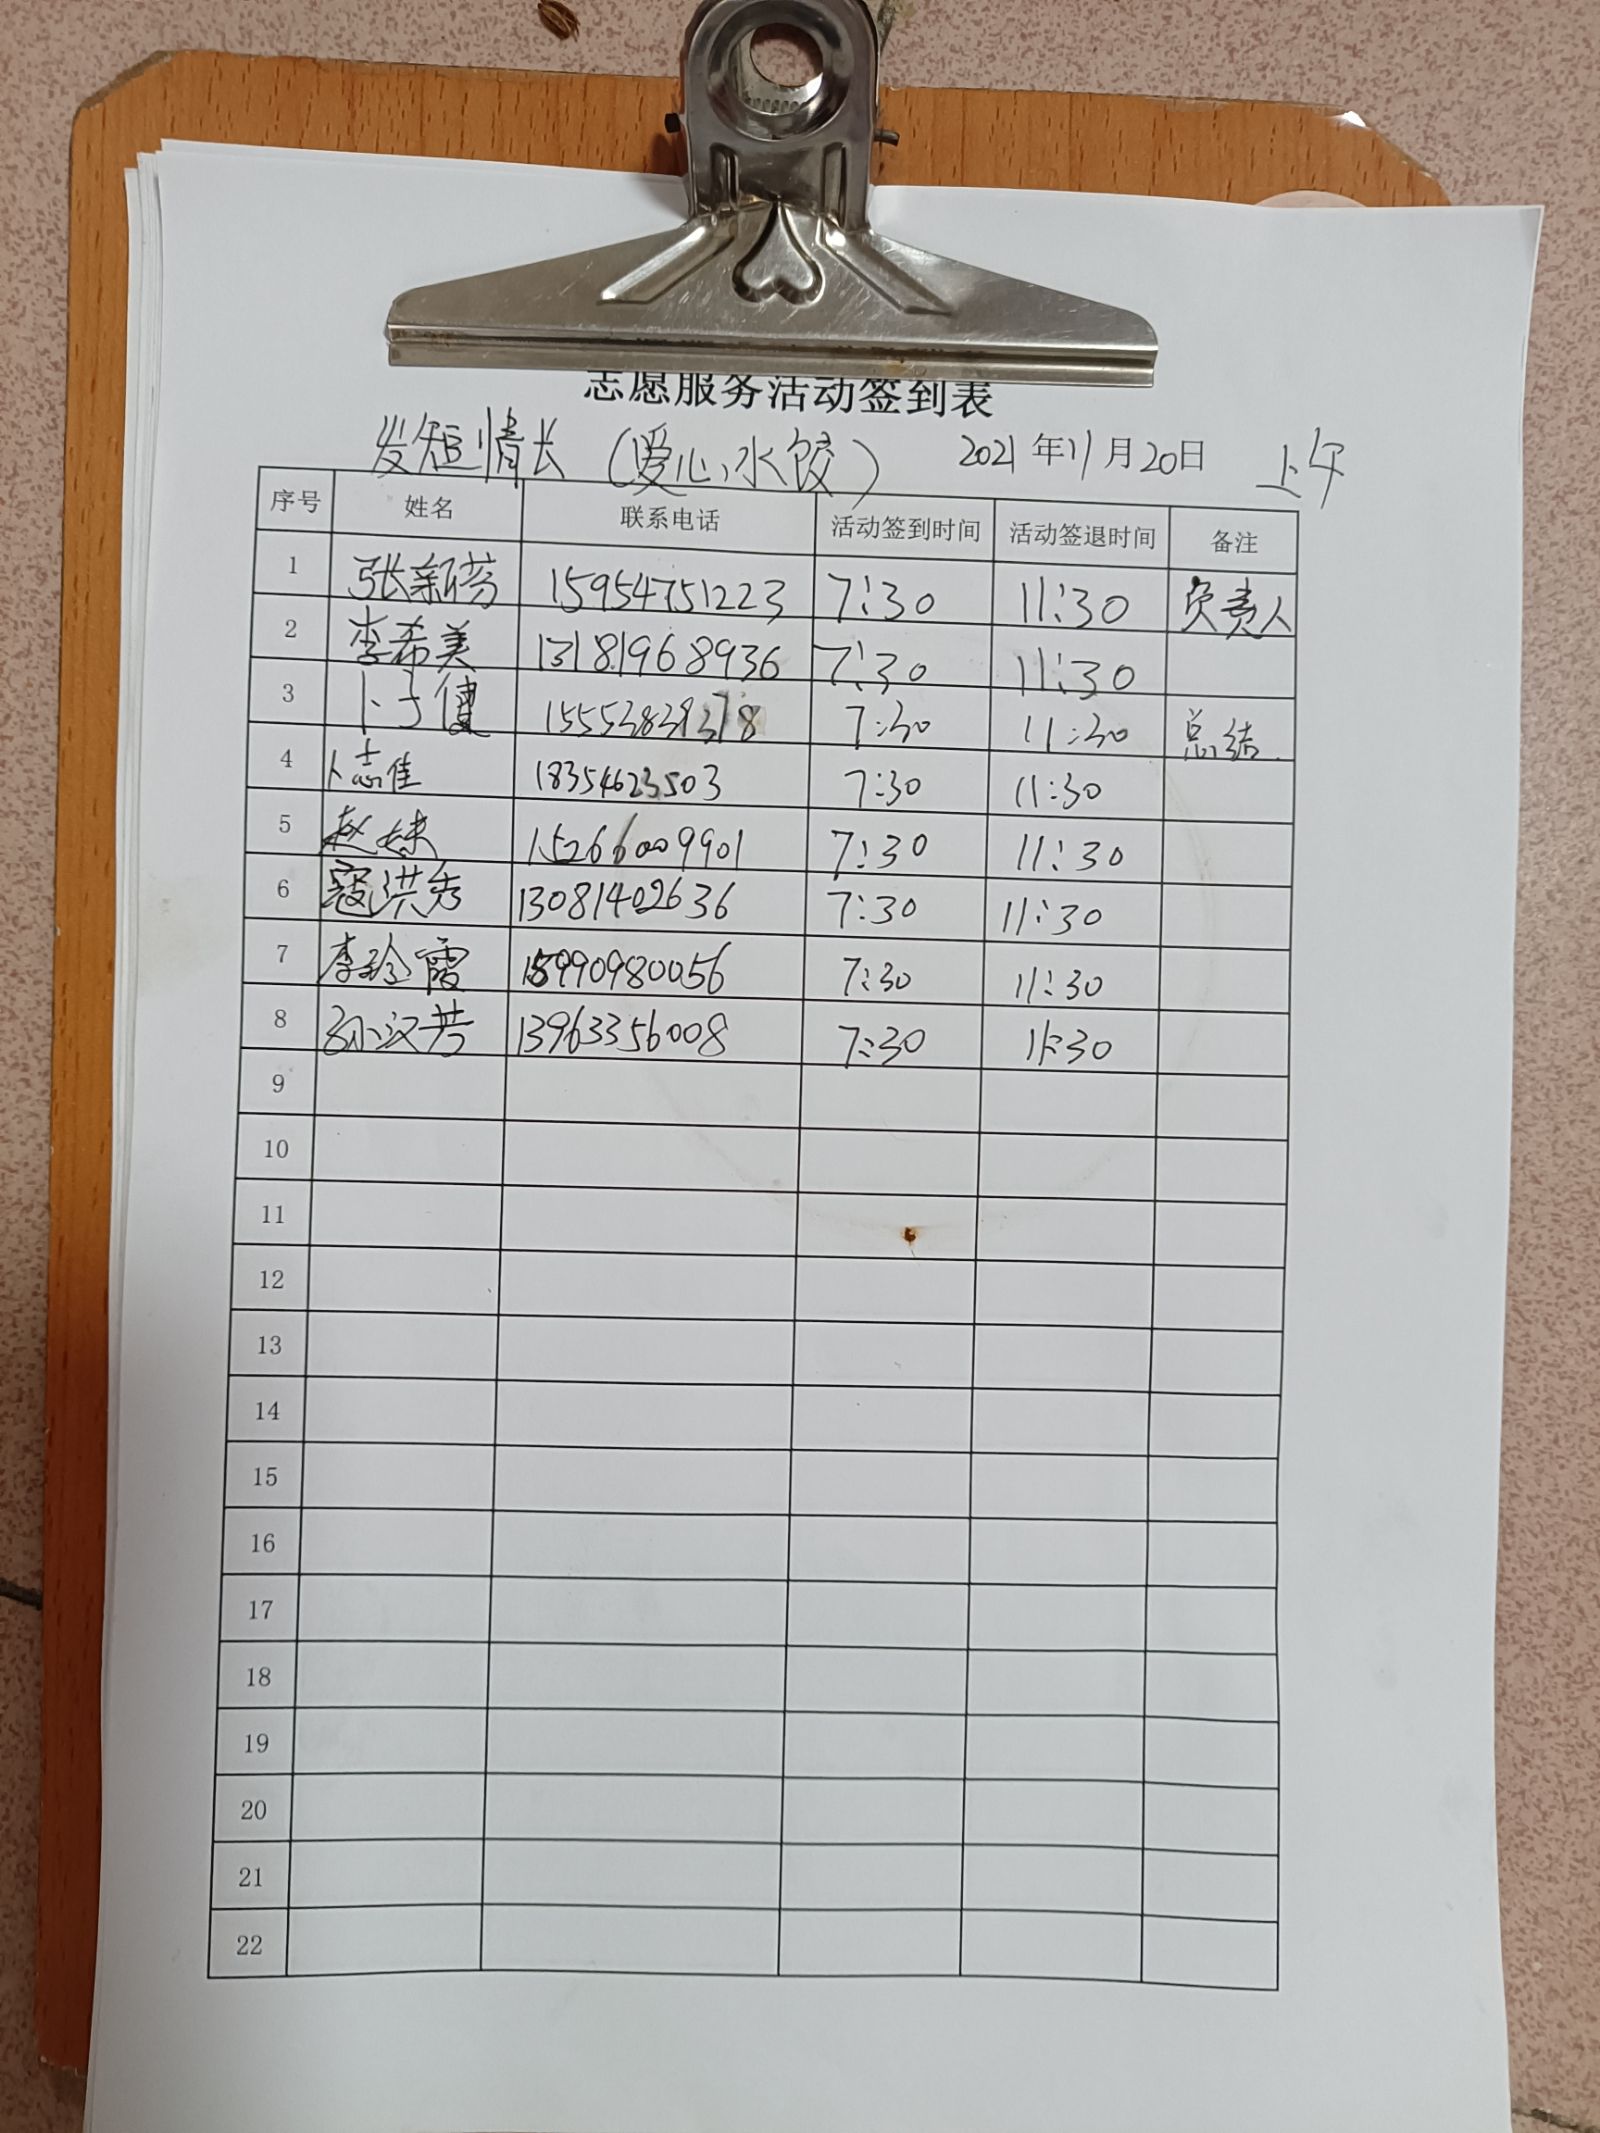 志愿服务活动签到表
发短情长（爱心水饺） 2021年11月20日 上午
序号 姓名 联系电话 活动签到时间 活动签退时间 备注
1 张新芬 15954751223 7:30 11:30 负责人
2 李希美 13181968936 7:30 11:30
3 卜子健 7:30 11:30 总结
4 卜志佳 18354623503 7:30 11:30
5 赵 15266009901 7:30 11:30
6 寇洪秀 13081402636 7:30 11:30
7 李玲霞 15990980056 7:30 11:30
8 孙汉芳 13963356008 7:30 11:30
9
10
11
12
13
14
15
16
17
18
19
20
21
22